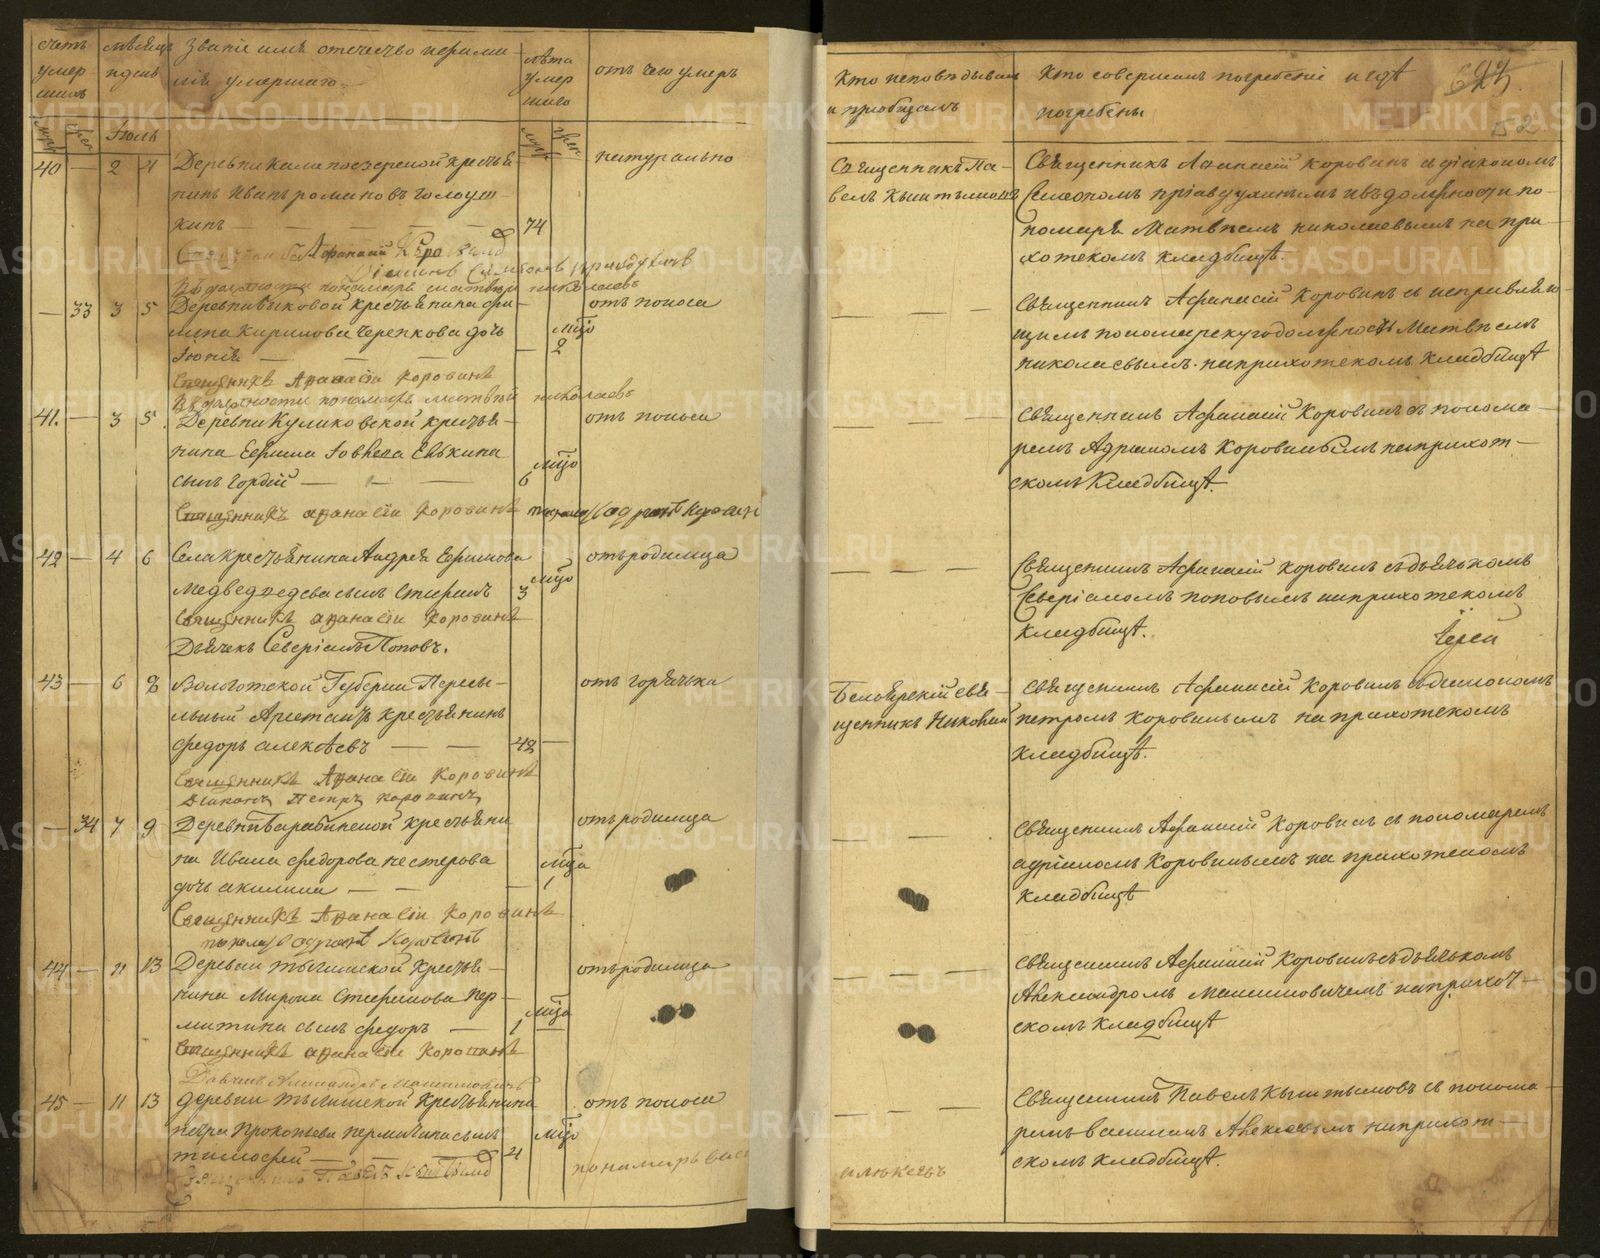 счетъ умершихъ
мѣсяцъ и день
Званіе имя отечество и фамилія умершаго
лѣта умершаго
отъ чего умеръ
Кто исповѣдывалъ и приобщалъ
Кто совершалъ погребеніе и гдѣ погребены
Іюль
40 — 2 4 Деревни Калапоозерской крестья-
нинъ Иванъ романовъ голоут-
кинъ — — — — 74
натурально
Священникъ Па-
велъ Кыштымовъ
Священникъ Афанасій Коровинъ съ діакономъ
номаря Матвѣемъ николаевымъ на при-
хотскомъ кладбищѣ.
въ должности пономаря матвѣй николаевъ
— 33 3 5 Деревни Быковой крестьянина фи-
липа Кирилова Черепкова дочь
мѣсо
2
отъ поноса
— — —
Священникъ Афанасій Коровинъ съ исправляю-
щимъ пономарскую должность Матвѣемъ
николаевымъ на прихотскомъ кладбищѣ
Священникъ Афанасіи Коровинъ
въ должности пономарь матвѣй николаевъ
41. — 3 5 Деревни Куликовской крестья-
нина Ефима Іовлева Евкина
сынъ Гордѣй — — — 6
мѣсо
отъ поноса
— — —
Священникъ Афанасій Коровинъ съ понома-
ремъ Адрианомъ Коровинымъ на прихот-
скомъ Кладбищѣ.
Священникъ афанасіи Коровинъ
42 — 4 6 Села крестьянина Андрея Ефимова
Медведедева сынъ Стефанъ 3
мѣсо
отъ родимца
— — —
Священникъ Афанасій Коровинъ съ дьячькомъ
Северіаномъ поповымъ на прихотскомъ
Кладбищѣ.
Іерей
Священникъ афанасіи Коровинъ
Дьячекъ Северіанъ Поповъ.
43 — 6 8 Вологотской Губерніи Пересы-
льный Арестантъ крестьянинъ
федоръ алексѣевъ — — 42 —
отъ горячька
Белоярскій свя-
щенникъ Николай
Священникъ Афанасій Коровинъ съ діакономъ
петромъ Коровинымъ на прихотскомъ
Кладбищѣ.
Священникъ Афанасіи Коровинъ
Діаконъ Петръ Коровинъ
— 34 7 9 Деревни Барабинской крестьяни-
на Ивана федорова нестерова
дочь акилина — — —
мѣса
1
отъ родимца
— —
Священникъ Афанасій Коровинъ съ пономаремъ
адріаномъ Коровинымъ на прихотскомъ
Кладбищѣ
Священникъ Афанасіи Коровинъ
пономарь адрианъ Коровинъ
44 — 11 13 Деревни тыгишской крестья-
нина Мирона Стефанова пер-
митина сынъ федоръ — 1 —
мѣса
отъ родимца
— — —
Священникъ Афанасій Коровинъ съ дьячькомъ
Александромъ Максимовичемъ на прихот-
скомъ кладбищѣ
Священникъ афанасіи Коровинъ
Дьячекъ Александръ Максимовичъ
45 — 11 13 деревни тыгишской Крестьянина
петра Прокопьева пермитина сынъ
тимофей — — 4
мѣсо
отъ поноса
— — —
Священникъ Павелъ Кыштымовъ съ понома-
ремъ василиемъ Алексеевымъ на прихот-
скомъ кладбищѣ.
Священникъ Павелъ Кыштымовъ
пономарь васи
METRIKI.GASO-URAL.RU